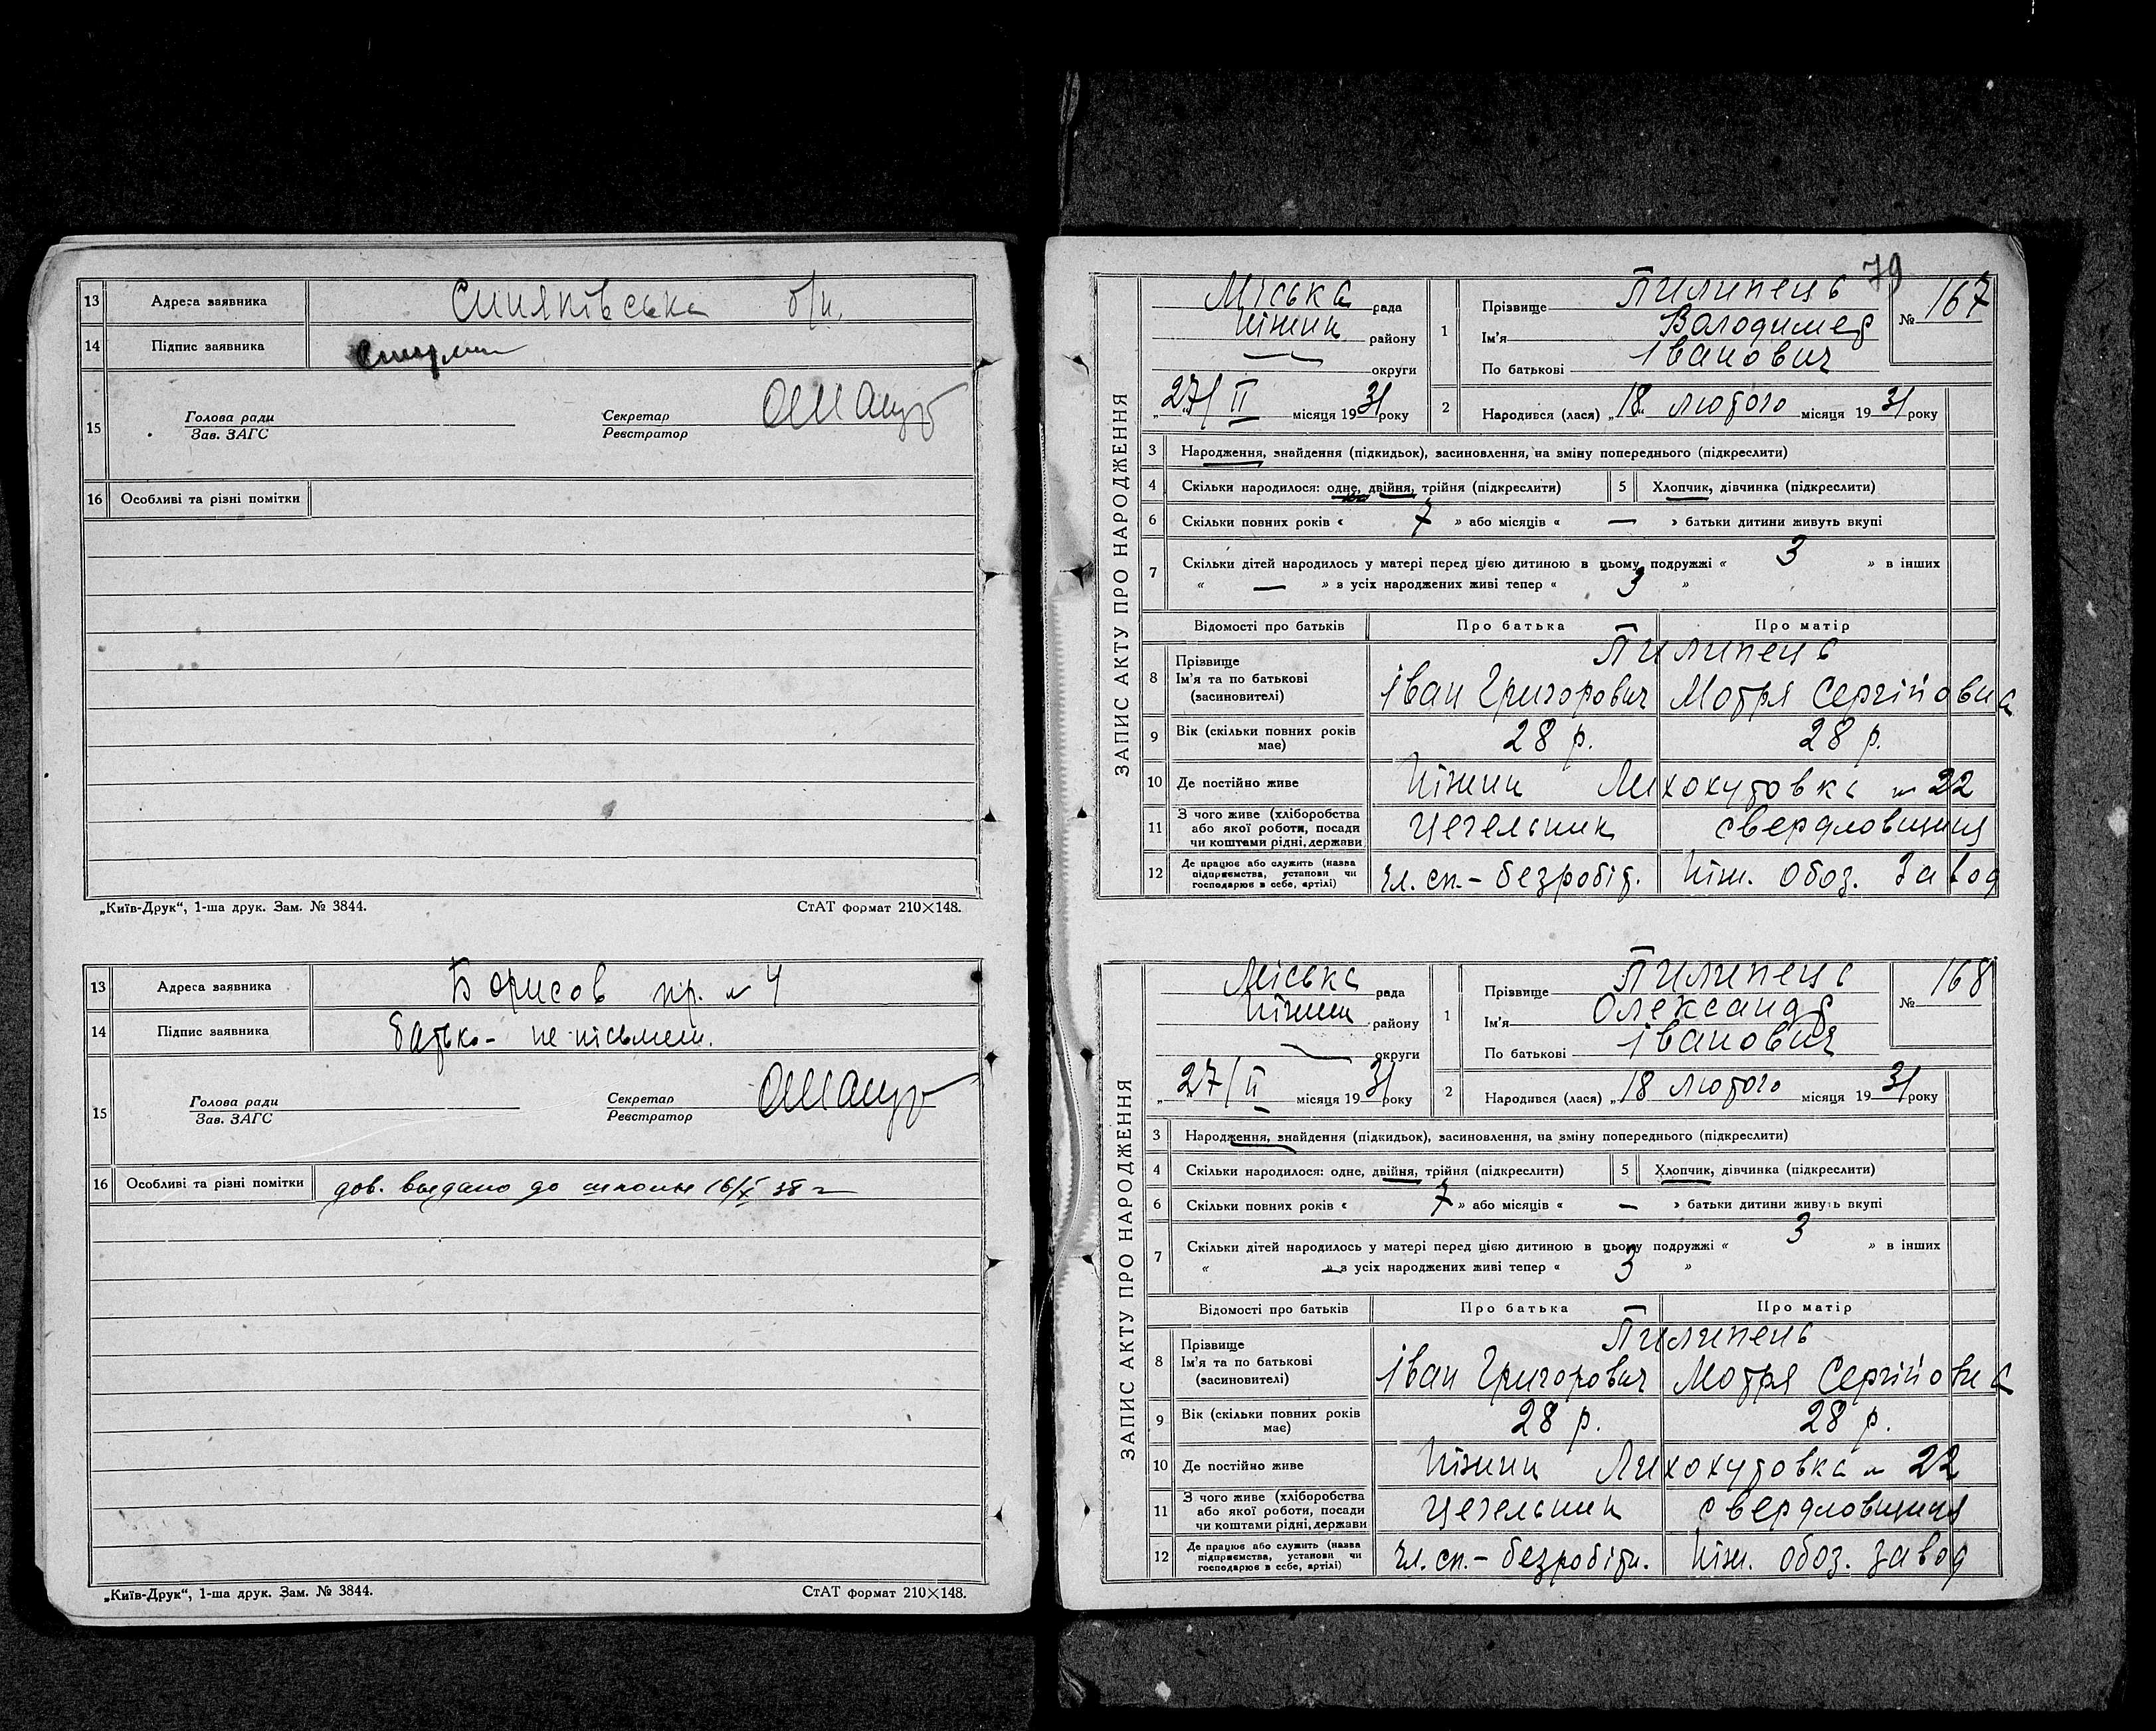 13 Адреса заявника Синяківська б/н.
14 Підпис заявника
15 Голова ради Секретар
Зав. ЗАГС Реєстратор
16 Особливі та різні помітки
„Київ-Друк“, 1-ша друк. Зам. № 3844. СтАТ формат 210×148.
13 Адреса заявника Борисов пр. № 4
14 Підпис заявника батько - не письмен.
15 Голова ради Секретар
Зав. ЗАГС Реєстратор
16 Особливі та різні помітки дов. видано до школи 16/X 38 г
„Київ-Друк“, 1-ша друк. Зам. № 3844. СтАТ формат 210×148.
79
ЗАПИС АКТУ ПРО НАРОДЖЕННЯ
Міська рада
Ніжин району
— округи
„27/ II місяця 1931 року
1 Прізвище Пилипець
Ім'я Володимер
По батькові Іванович
№ 167
2 Народився (лася) „18 лютого місяця 1931 року
3 Народження, знайдення (підкидьок), засиновлення, на зміну попереднього (підкреслити)
4 Скільки народилося: одне, двійня, трійня (підкреслити) 5 Хлопчик, дівчинка (підкреслити)
6 Скільки повних років « 7 » або місяців « — » батьки дитини живуть вкупі
7 Скільки дітей народилось у матері перед цією дитиною в цьому подружжі « 3 » в інших
« — » з усіх народжених живі тепер « 3 »
Відомості про батьків Про батька Про матір
8 Прізвище Пилипець
Ім'я та по батькові Іван Григорович Мотря Сергійовна
(засиновителі)
9 Вік (скільки повних років має) 28 р. 28 р.
10 Де постійно живе Ніжин Лихохутовка № 22
11 З чого живе (хліборобства
або якої роботи, посади Цегельник свердловщиця
чи коштами рідні, держави
12 Де працює або служить (назва
підприємства, установи чи чл. сп. - безробіт. Ніж. Обоз. Завод
господарює в себе, артілі)
ЗАПИС АКТУ ПРО НАРОДЖЕННЯ
Міська рада
Ніжин району
— округи
„27/ II місяця 1931 року
1 Прізвище Пилипець
Ім'я Олександр
По батькові Іванович
№ 168
2 Народився (лася) „18 лютого місяця 1931 року
3 Народження, знайдення (підкидьок), засиновлення, на зміну попереднього (підкреслити)
4 Скільки народилося: одне, двійня, трійня (підкреслити) 5 Хлопчик, дівчинка (підкреслити)
6 Скільки повних років « 7 » або місяців « — » батьки дитини живуть вкупі
7 Скільки дітей народилось у матері перед цією дитиною в цьому подружжі « 3 » в інших
« — » з усіх народжених живі тепер « 3 »
Відомості про батьків Про батька Про матір
8 Прізвище Пилипець
Ім'я та по батькові Іван Григорович Мотря Сергійовна
(засиновителі)
9 Вік (скільки повних років має) 28 р. 28 р.
10 Де постійно живе Ніжин Лихохутовка № 22
11 З чого живе (хліборобства
або якої роботи, посади Цегельник свердловщиця
чи коштами рідні, держави
12 Де працює або служить (назва
підприємства, установи чи чл. сп. - безробітн. Ніж. обоз. завод
господарює в себе, артілі)